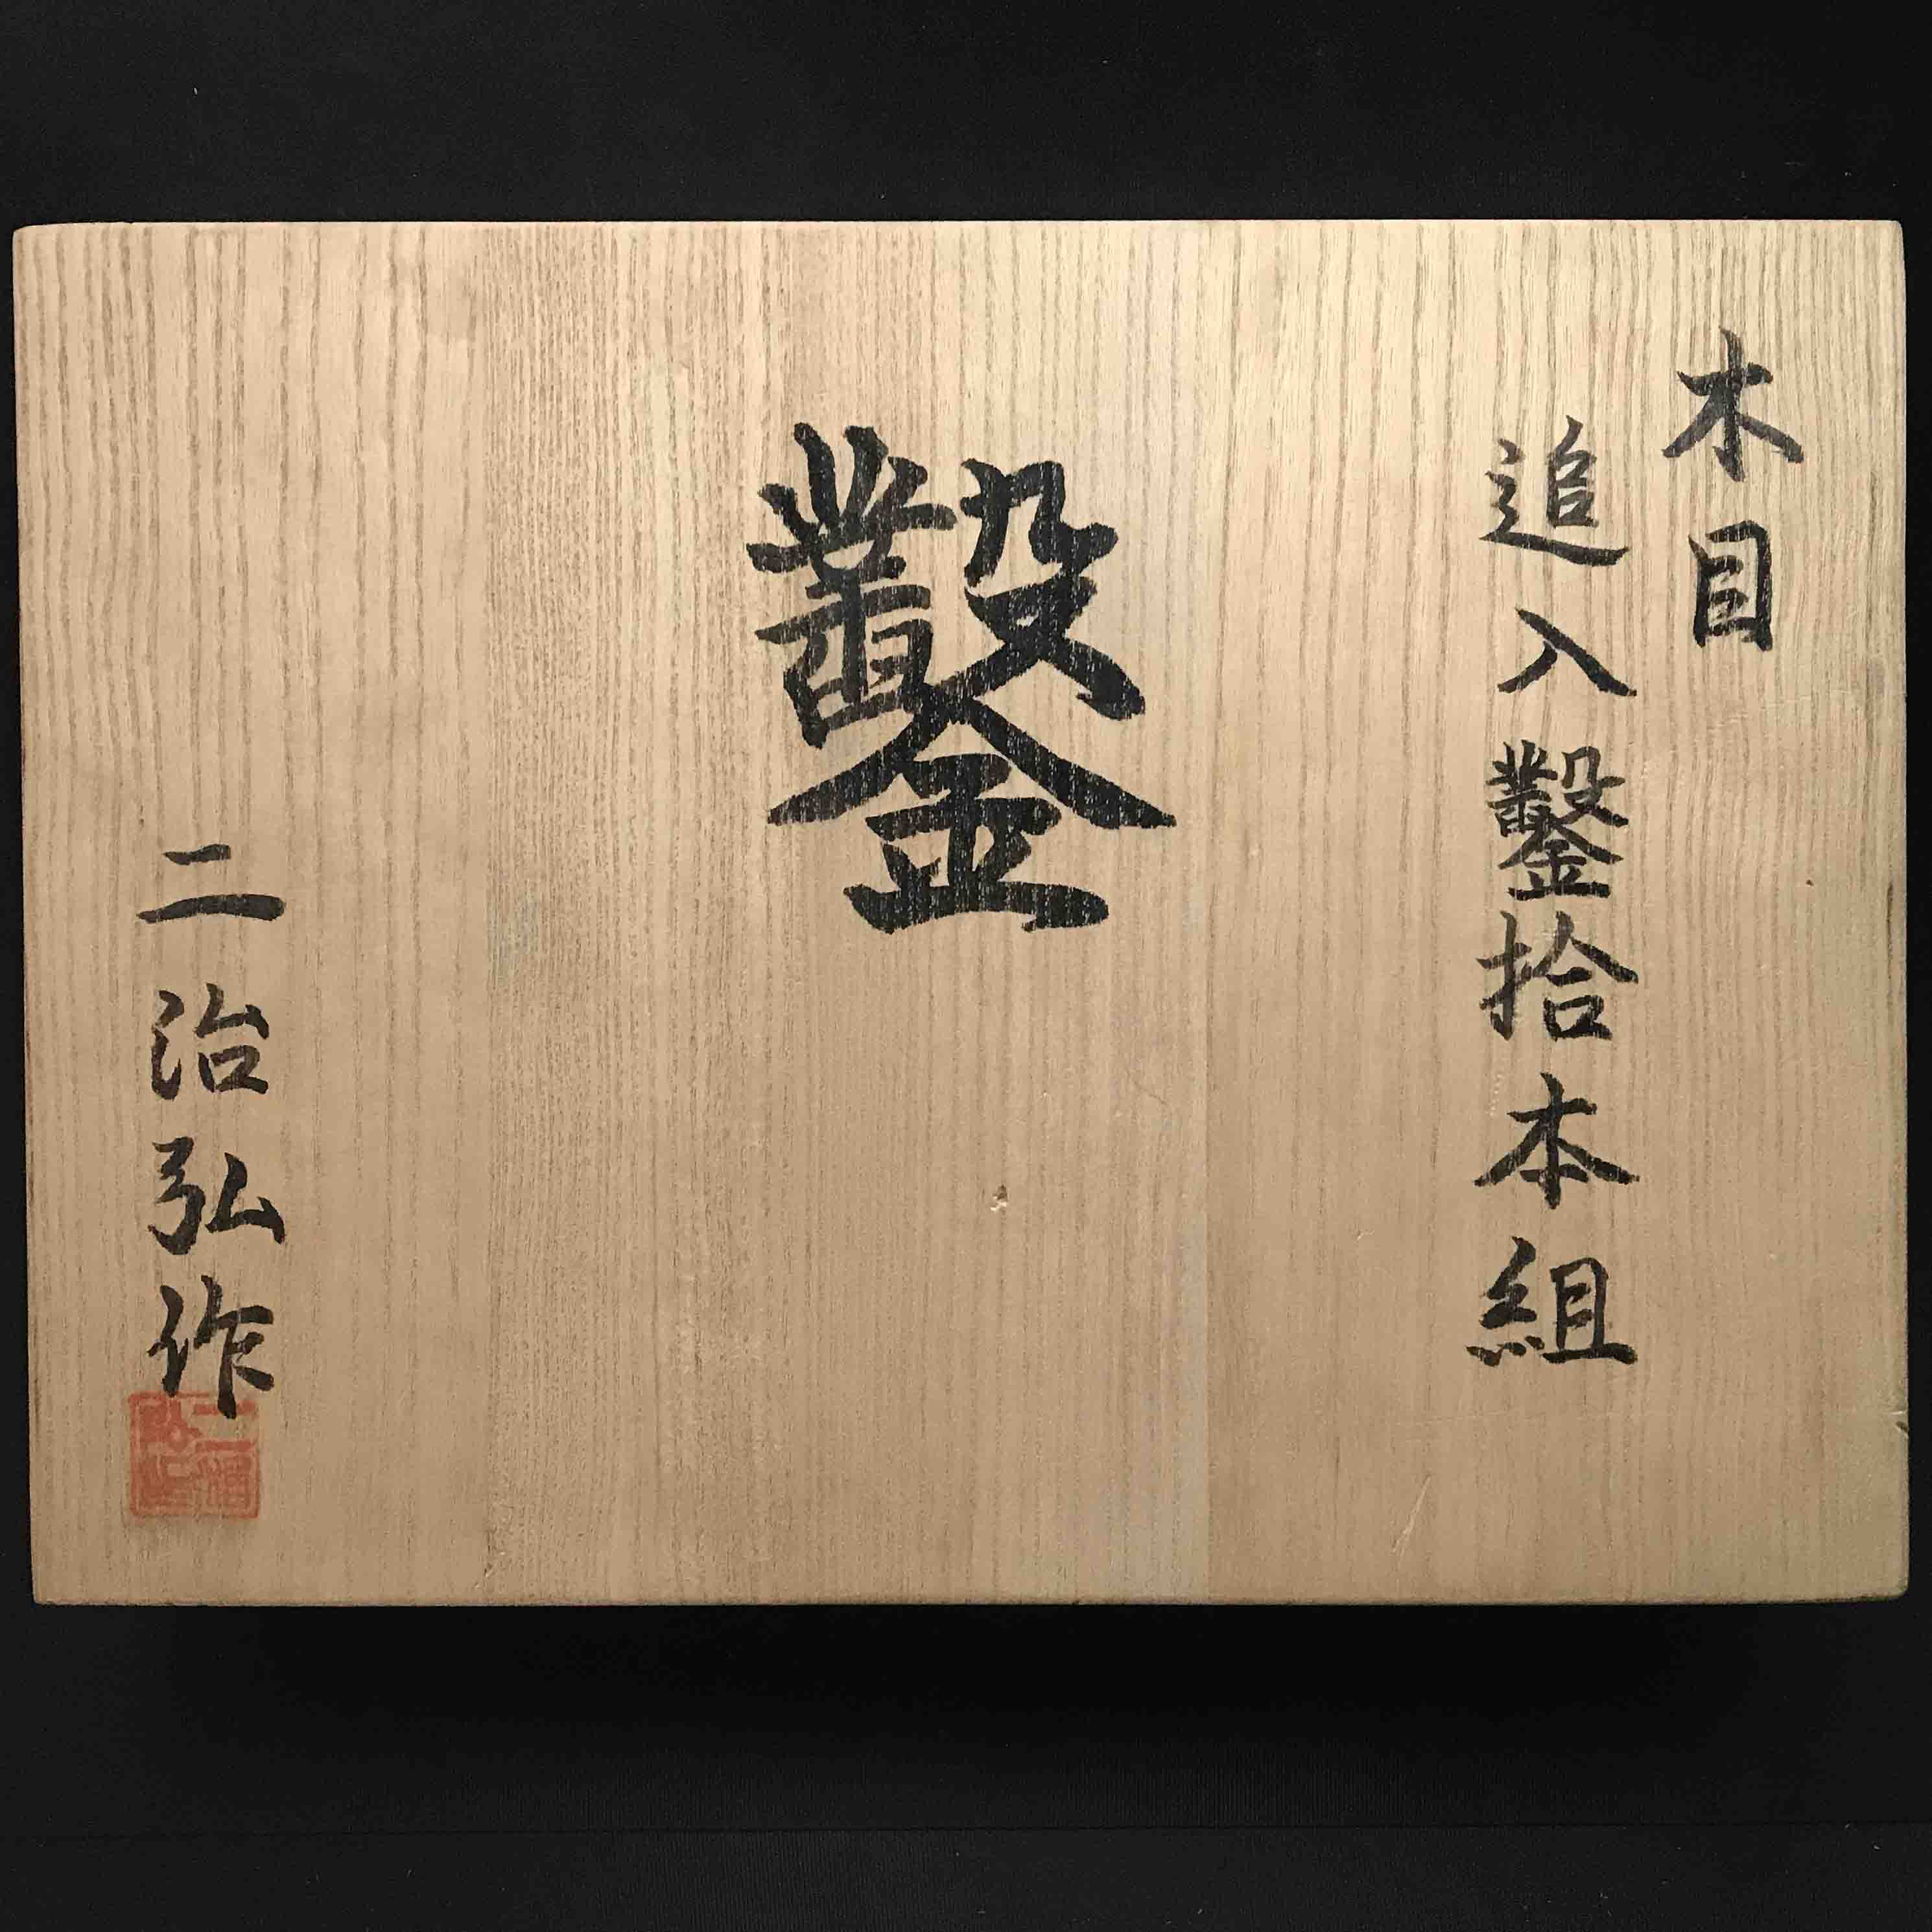 木目
追入鑿拾本組
鑿
二治弘作